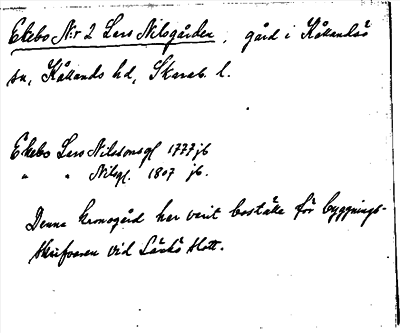 Ekebo N:r 2 Lars Nilsgården, gård i Kållandsö
sn, Kållands hd, Skarab. l.
Ekebo Lars Nilssonsgl 1777 jb
" " Nilsgl. 1807 jb.
Denna kronogård har varit boställe för byggnings-
skrifvaren vid Läckö slott.